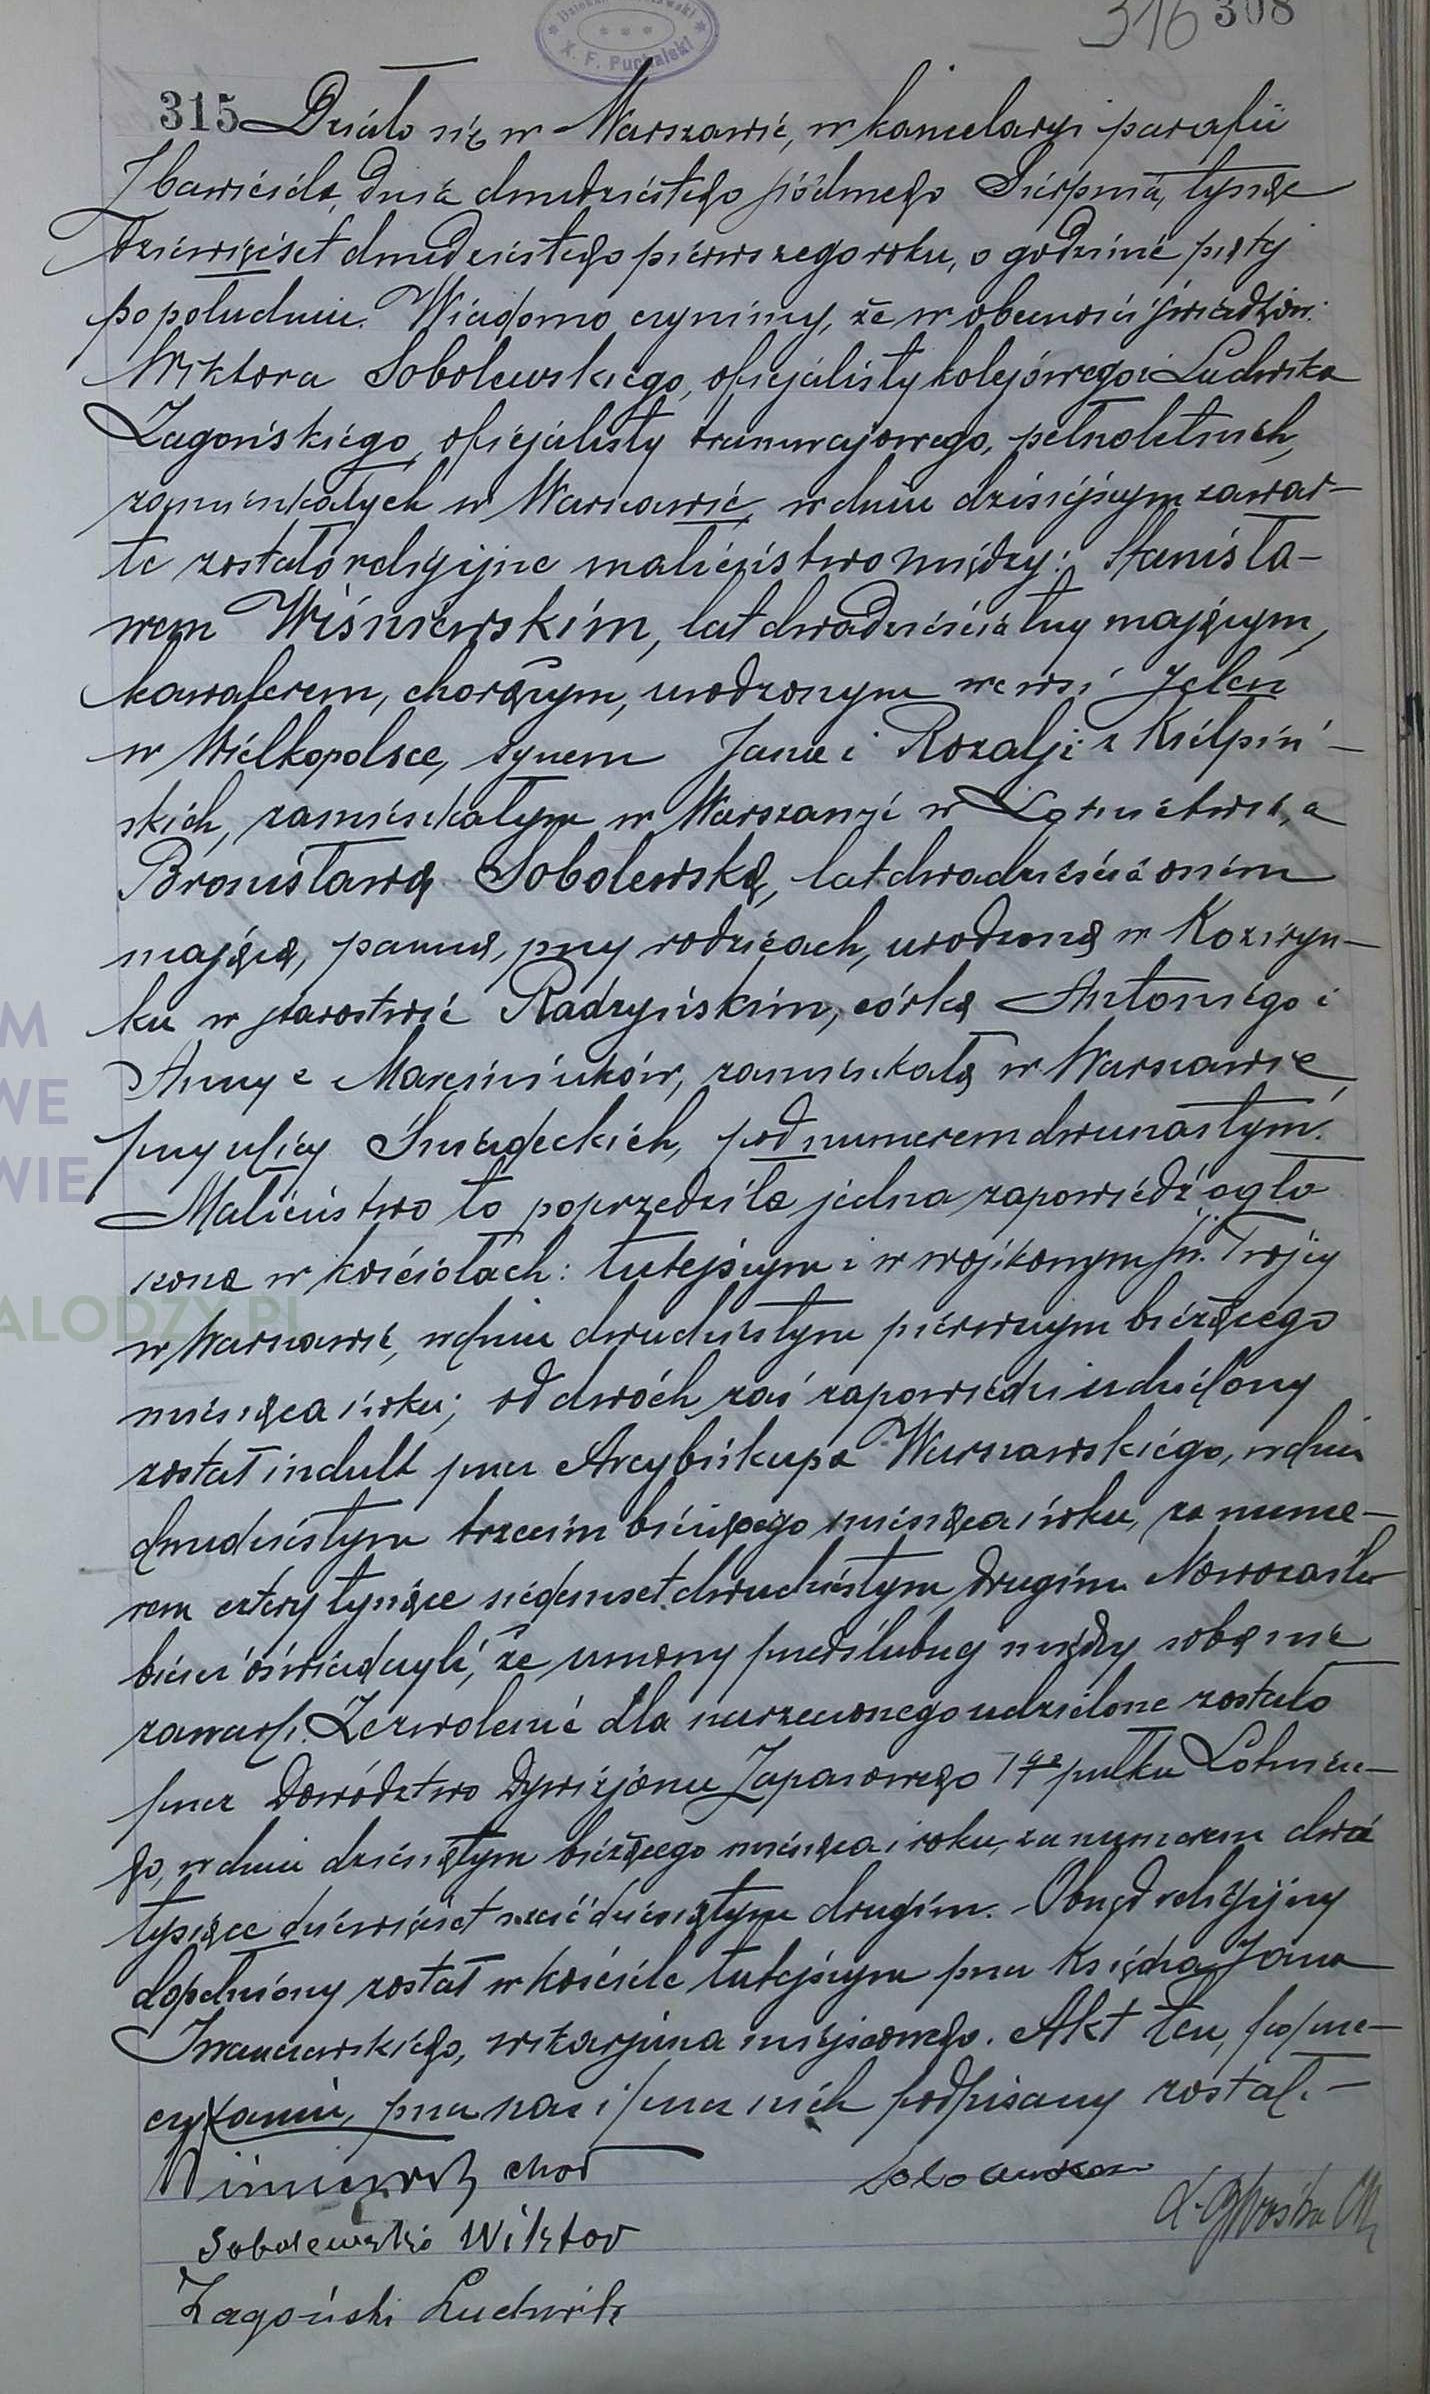 316 308
X. F. Puchalski
315 Działo się w Warszawie, w kancelaryi parafii
Zbawiciela, dnia dwudziestego siódmego Sierpnia, tysiąc
dziewięćset dwudziestego pierwszego roku, o godzinie piątej
po południu. Wiadomo czynimy, że w obecności świadków:
Wiktora Sobolewskiego, oficjalisty kolejowego i Ludwika
Zagońskiego, oficjalisty tramwajowego, pełnoletnich,
zamieszkałych w Warszawie, w dniu dzisiejszym zawar-
te zostało religijne małżeństwo między: Stanisła-
wem Wiśniewskim, lat dwadzieścia trzy mającym,
kawalerem, chorążym, urodzonym we wsi Jeleń
w Wielkopolsce, synem Jana i Rozalji z Kiełpiń-
skich, zamieszkałym w Warszawie w Lotnictwie, a
Bronisławą Sobolewską, lat dwadzieścia osiem
mającą, panną, przy rodzicach, urodzoną w Koziryn-
ku w starostwie Radzyńskim, córką Antoniego i
Anny z Marciniuków, zamieszkałą w Warszawie,
przy ulicy Śniadeckich, pod numerem dwunastym.
Małżeństwo to poprzedziła jedna zapowiedź ogło
szona w kościołach: tutejszym i w wojskowym Św. Trójcy
w Warszawie, w dniu dwudziestym pierwszym bieżącego
miesiąca i roku; od dwóch zaś zapowiedzi udzielony
został indult przez Arcybiskupa Warszawskiego, w dniu
dwudziestym trzecim bieżącego miesiąca i roku, za nume-
rem cztery tysiące siedemset dwudziestym drugim. Nowozaślu
bieni oświadczyli, że umowy przedślubnej między sobą nie
zawarli. Zezwolenie dla narzeczonego udzielone zostało
przez Dowództwo Dywizjonu Zapasowego 1go pułku Lotnicze-
go, w dniu dziesiątym bieżącego miesiąca i roku, za numerem dwa
tysiące dziewięćset sześćdziesiątym drugim. - Obrzęd religijny
dopełniony został w kościele tutejszym przez Księdza Jana
Iwanowskiego, wikarjusza miejscowego. Akt ten, po prze-
czytaniu, przez nas i przez nich podpisany został. -
Wiśniewski chor
Sobolewska
Sobolewski Wiktor
Zagoński Ludwik
M
WE
WIE
ALODZY.PL